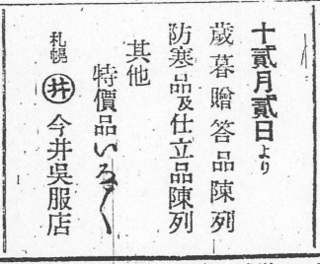 十貳月貳日より
歲暮贈答品陳列
防寒品及仕立品陳列
其他
特價品いろ〱
札幌 井 今井吳服店